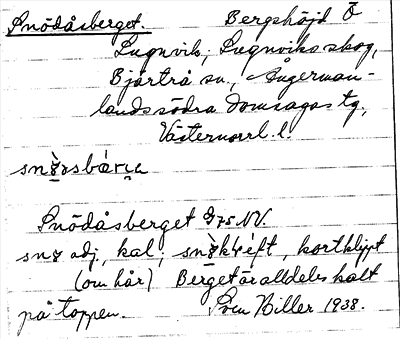 Snödåsberget. Bergshöjd Ö
Lugnvik, Lugnviks skog,
Bjärtrå sn, Ångerman-
lands södra domsagas tg,
Västernorrl. l.
Snödåsberget 975 NV.
adj, kal; kortklippt
(om hår) Berget är alldeles kalt
på toppen. Sven Biller 1938.